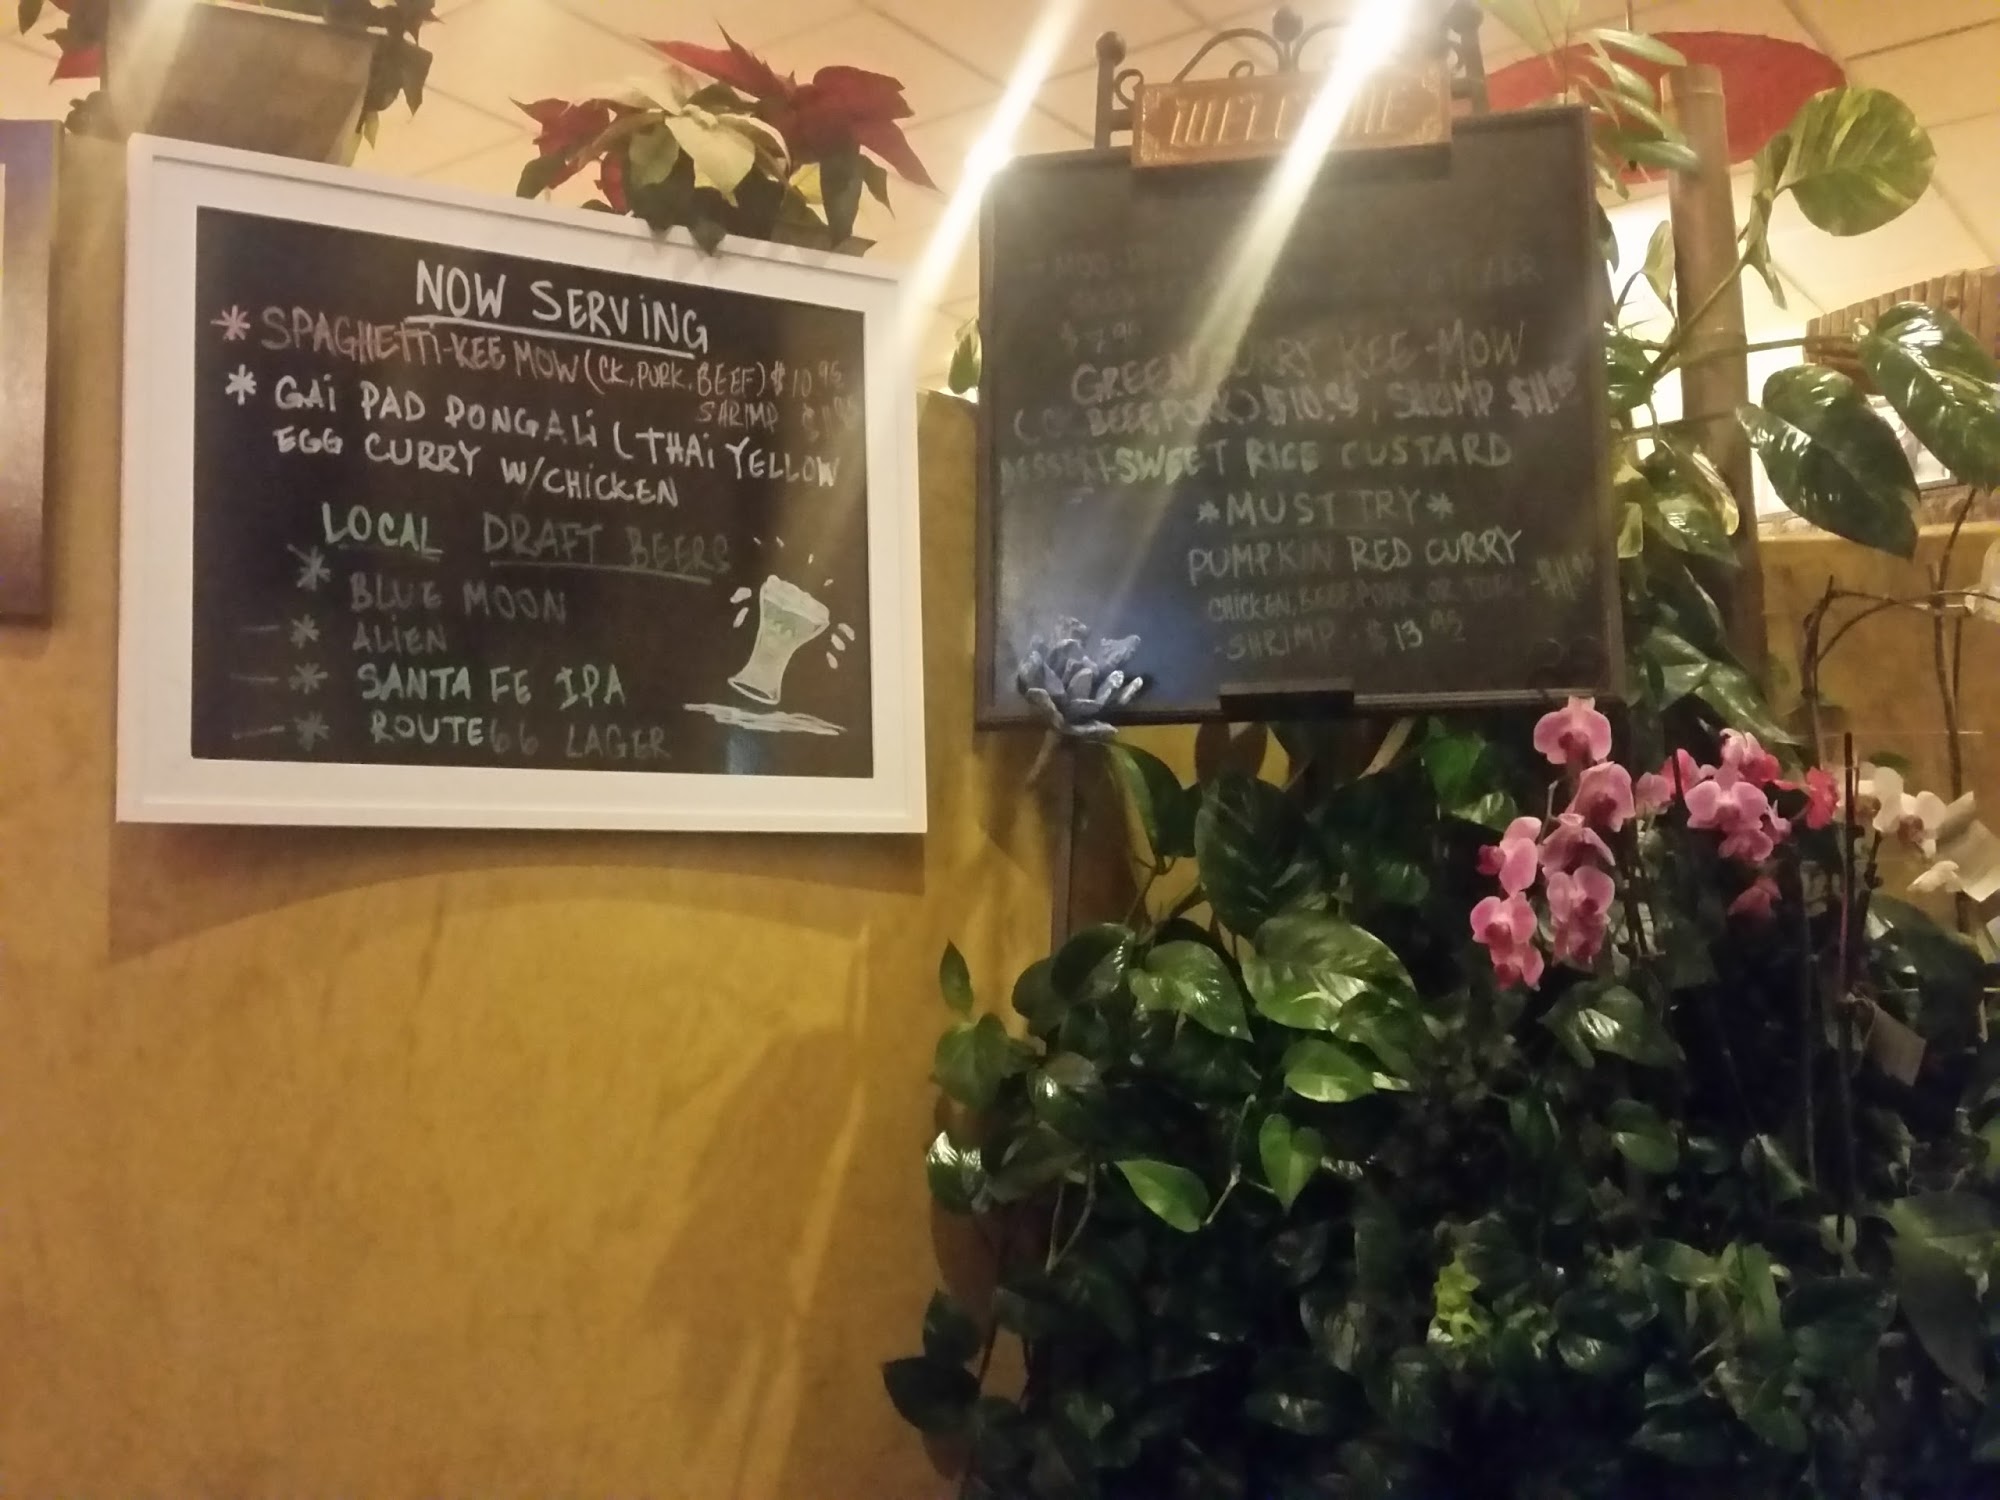 NOW SERVING
* SPAGHETTi-KEE MOW (CK, PORK, BEEF) $10.95
SHRIMP
* GAi PAD PONGALi (THAi YELLOW
EGG CURRY W/CHiCKEN
LOCAL DRAFT BEERS
* BLUE MOON
- * ALiEN
- * SANTA FE IPA
- * ROUTE 66 LAGER
WELCOME
$7.95
GREEN CURRY KEE-MOW
BEEF, PORK) $10.95, SHRIMP $11.95
DESSERT-SWEET RICE CUSTARD
*MUST TRY*
PUMPKIN RED CURRY
CHICKEN, BEEF, PORK, OR TOFU - $11.95
- SHRIMP - $13.95